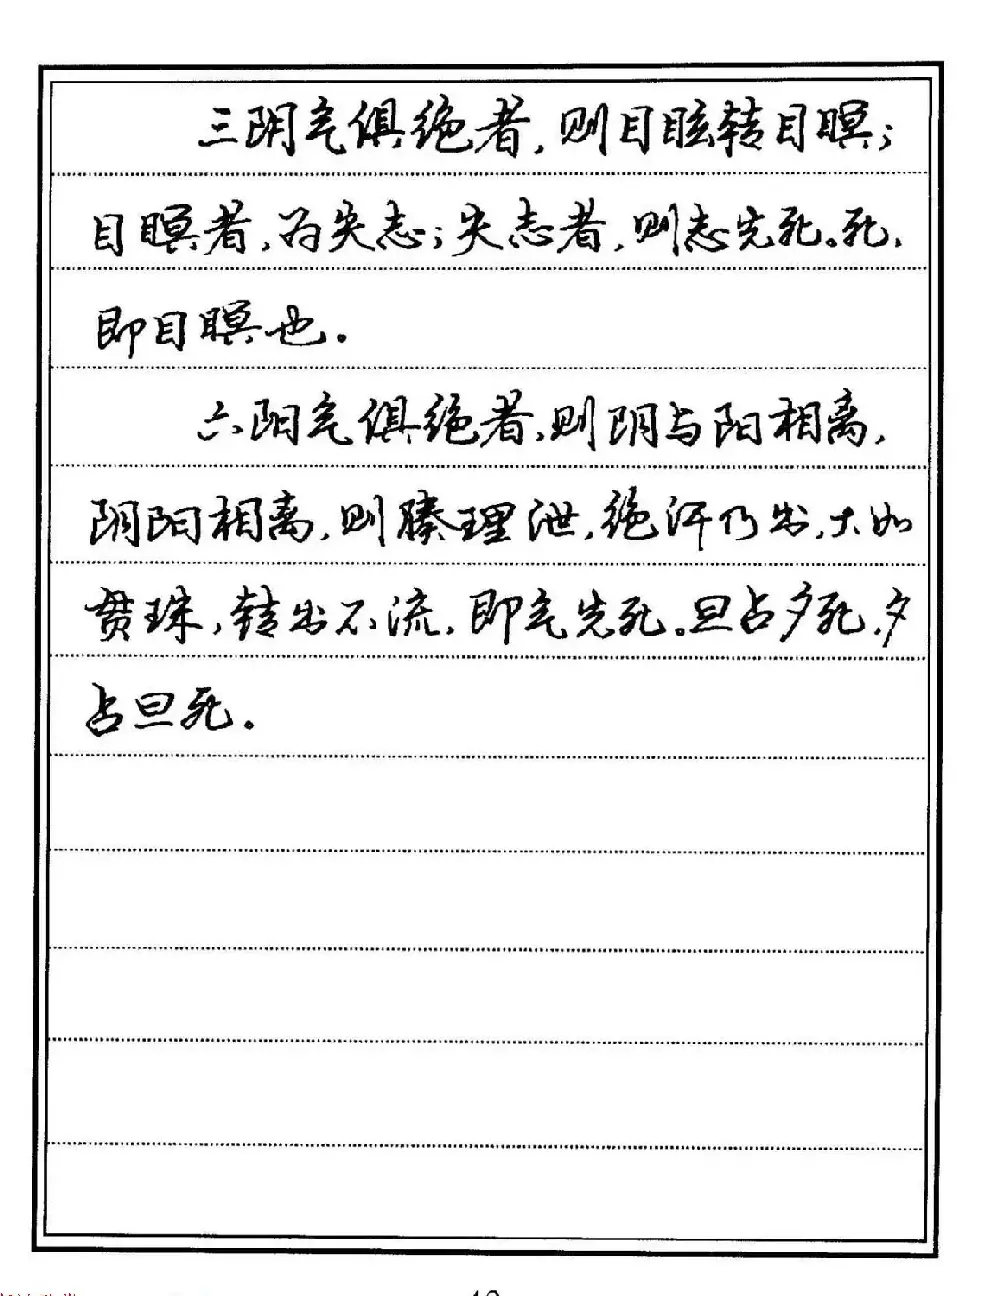 三阴气俱绝者,则目眩转目瞑;
目瞑者,为失志;失志者,则志先死。死,
即目瞑也.
六阳气俱绝者,则阴与阳相离,
阴阳相离,则腠理泄,绝汗乃出,大如
贯珠,转出不流,即气先死。旦占夕死,夕
占旦死.